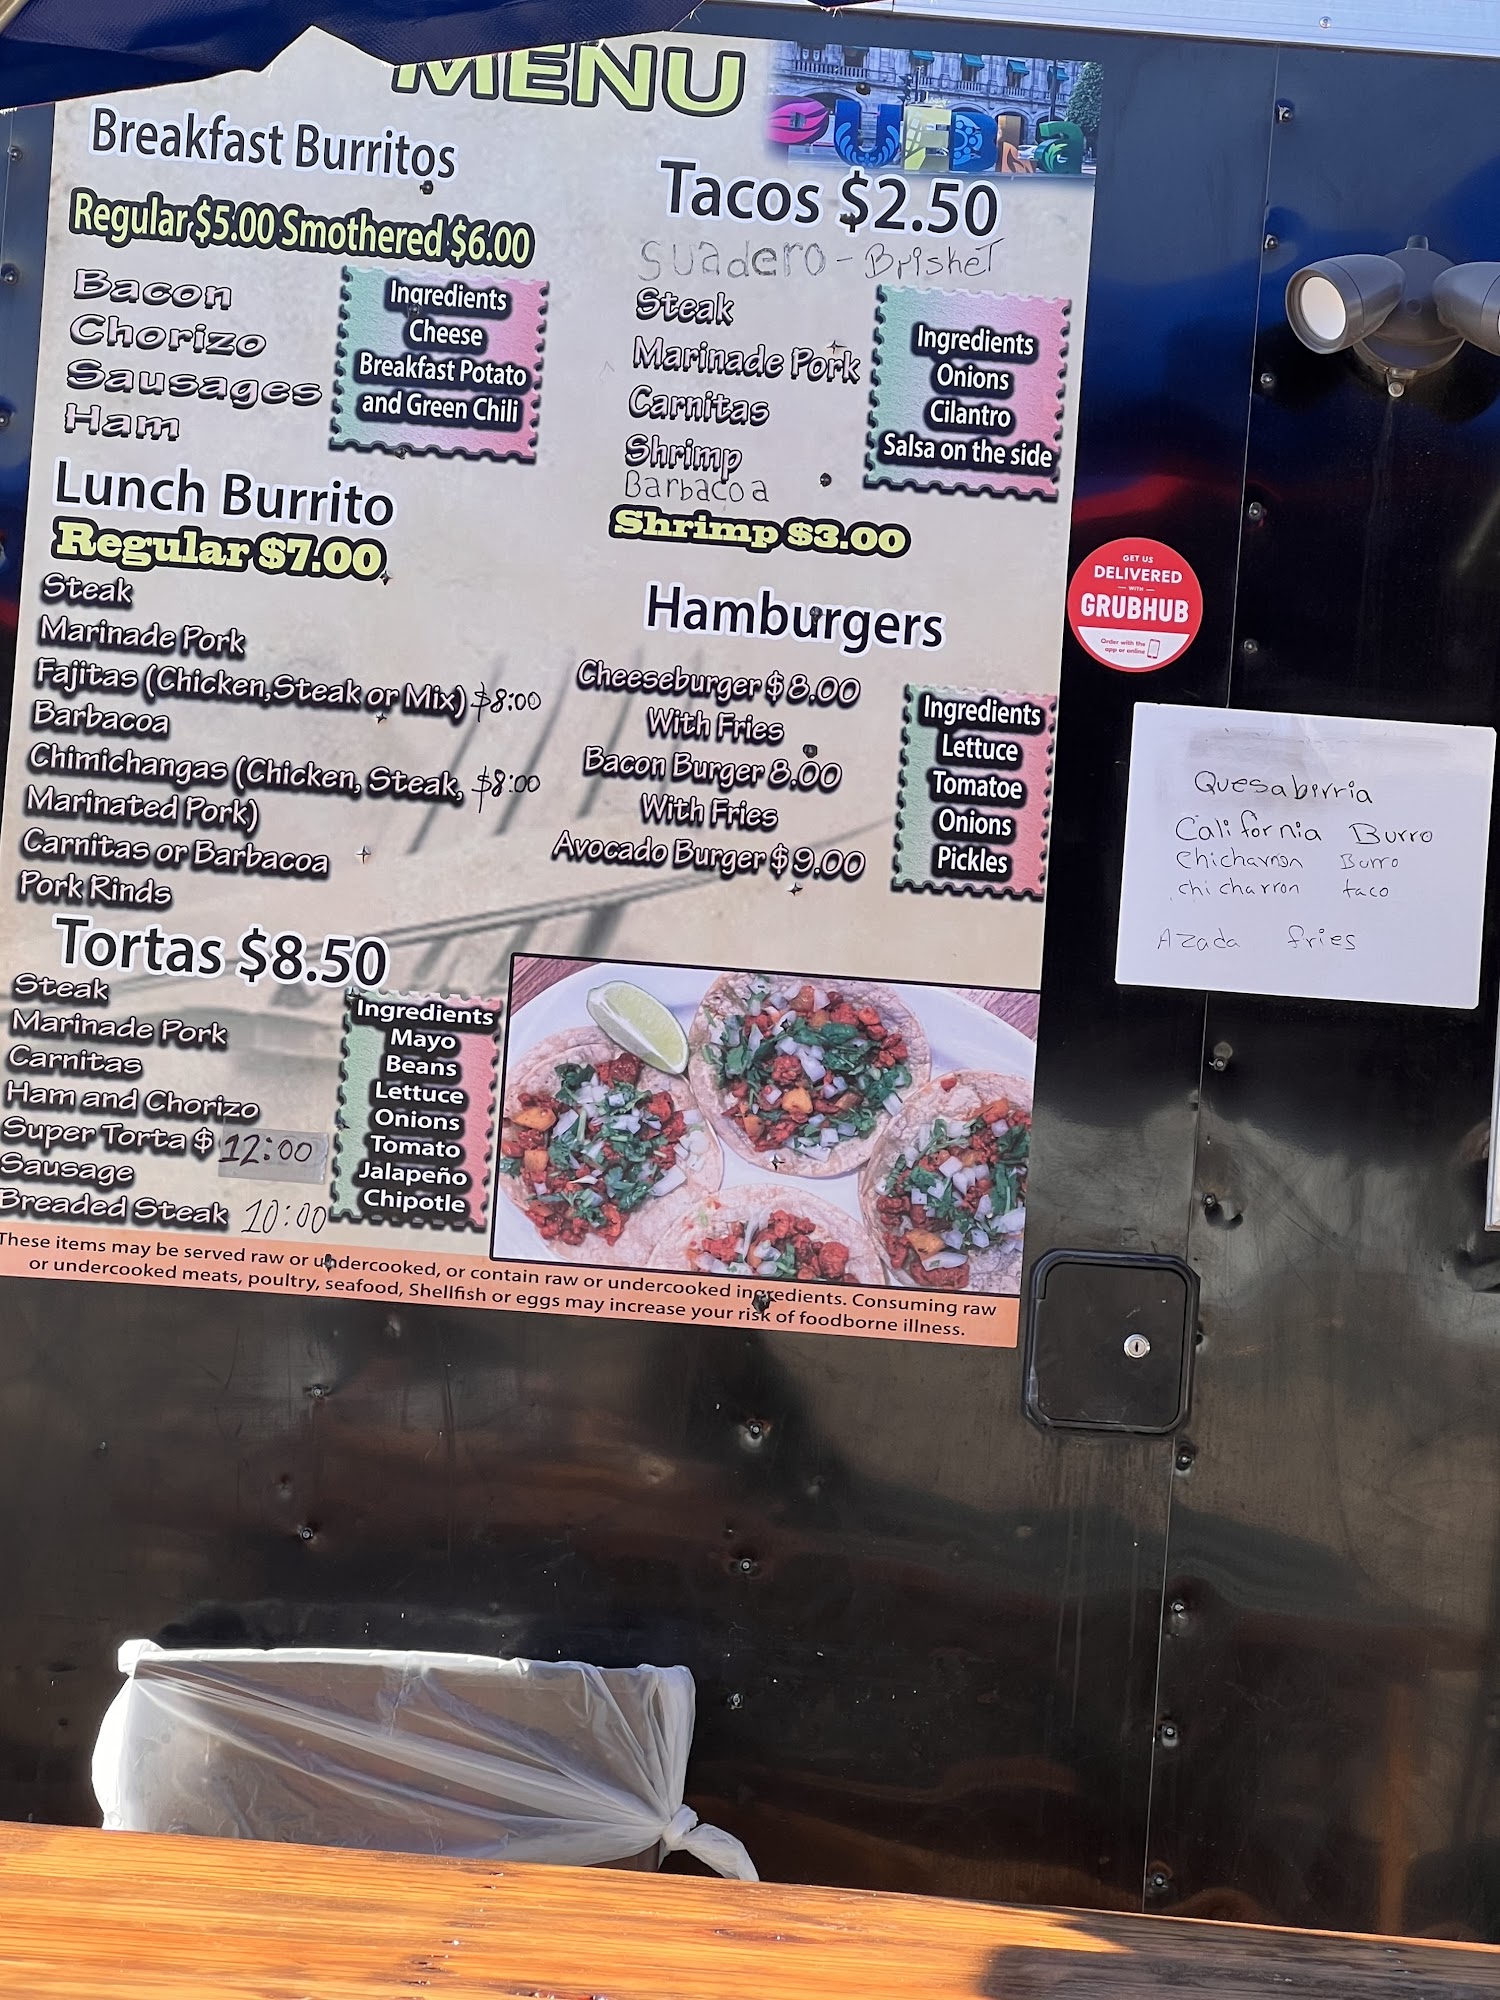 MENU
PUEBLA
Breakfast Burritos
Regular $5.00 Smothered $6.00
Bacon
Chorizo
Sausages
Ham
Ingredients
Cheese
Breakfast Potato
and Green Chili
Lunch Burrito
Regular $7.00
Steak
Marinade Pork
Fajitas (Chicken,Steak or Mix) $8:00
Barbacoa
Chimichangas (Chicken, Steak, $8:00
Marinated Pork)
Carnitas or Barbacoa
Pork Rinds
Tortas $8.50
Steak
Marinade Pork
Carnitas
Ham and Chorizo
Super Torta $ 12:00
Sausage
Breaded Steak 10:00
Ingredients
Mayo
Beans
Lettuce
Onions
Tomato
Jalapeño
Chipotle
Tacos $2.50
Suadero - Brisket
Steak
Marinade Pork
Carnitas
Shrimp
Barbacoa
Shrimp $3.00
Ingredients
Onions
Cilantro
Salsa on the side
Hamburgers
Cheeseburger $8.00
With Fries
Bacon Burger 8.00
With Fries
Avocado Burger $9.00
Ingredients
Lettuce
Tomatoe
Onions
Pickles
These items may be served raw or undercooked, or contain raw or undercooked ingredients. Consuming raw
or undercooked meats, poultry, seafood, Shellfish or eggs may increase your risk of foodborne illness.
GET US
DELIVERED
WITH
GRUBHUB
Order with the
app or online
Quesabirria
California Burro
Chicharron Burro
chicharron taco
Azada fries